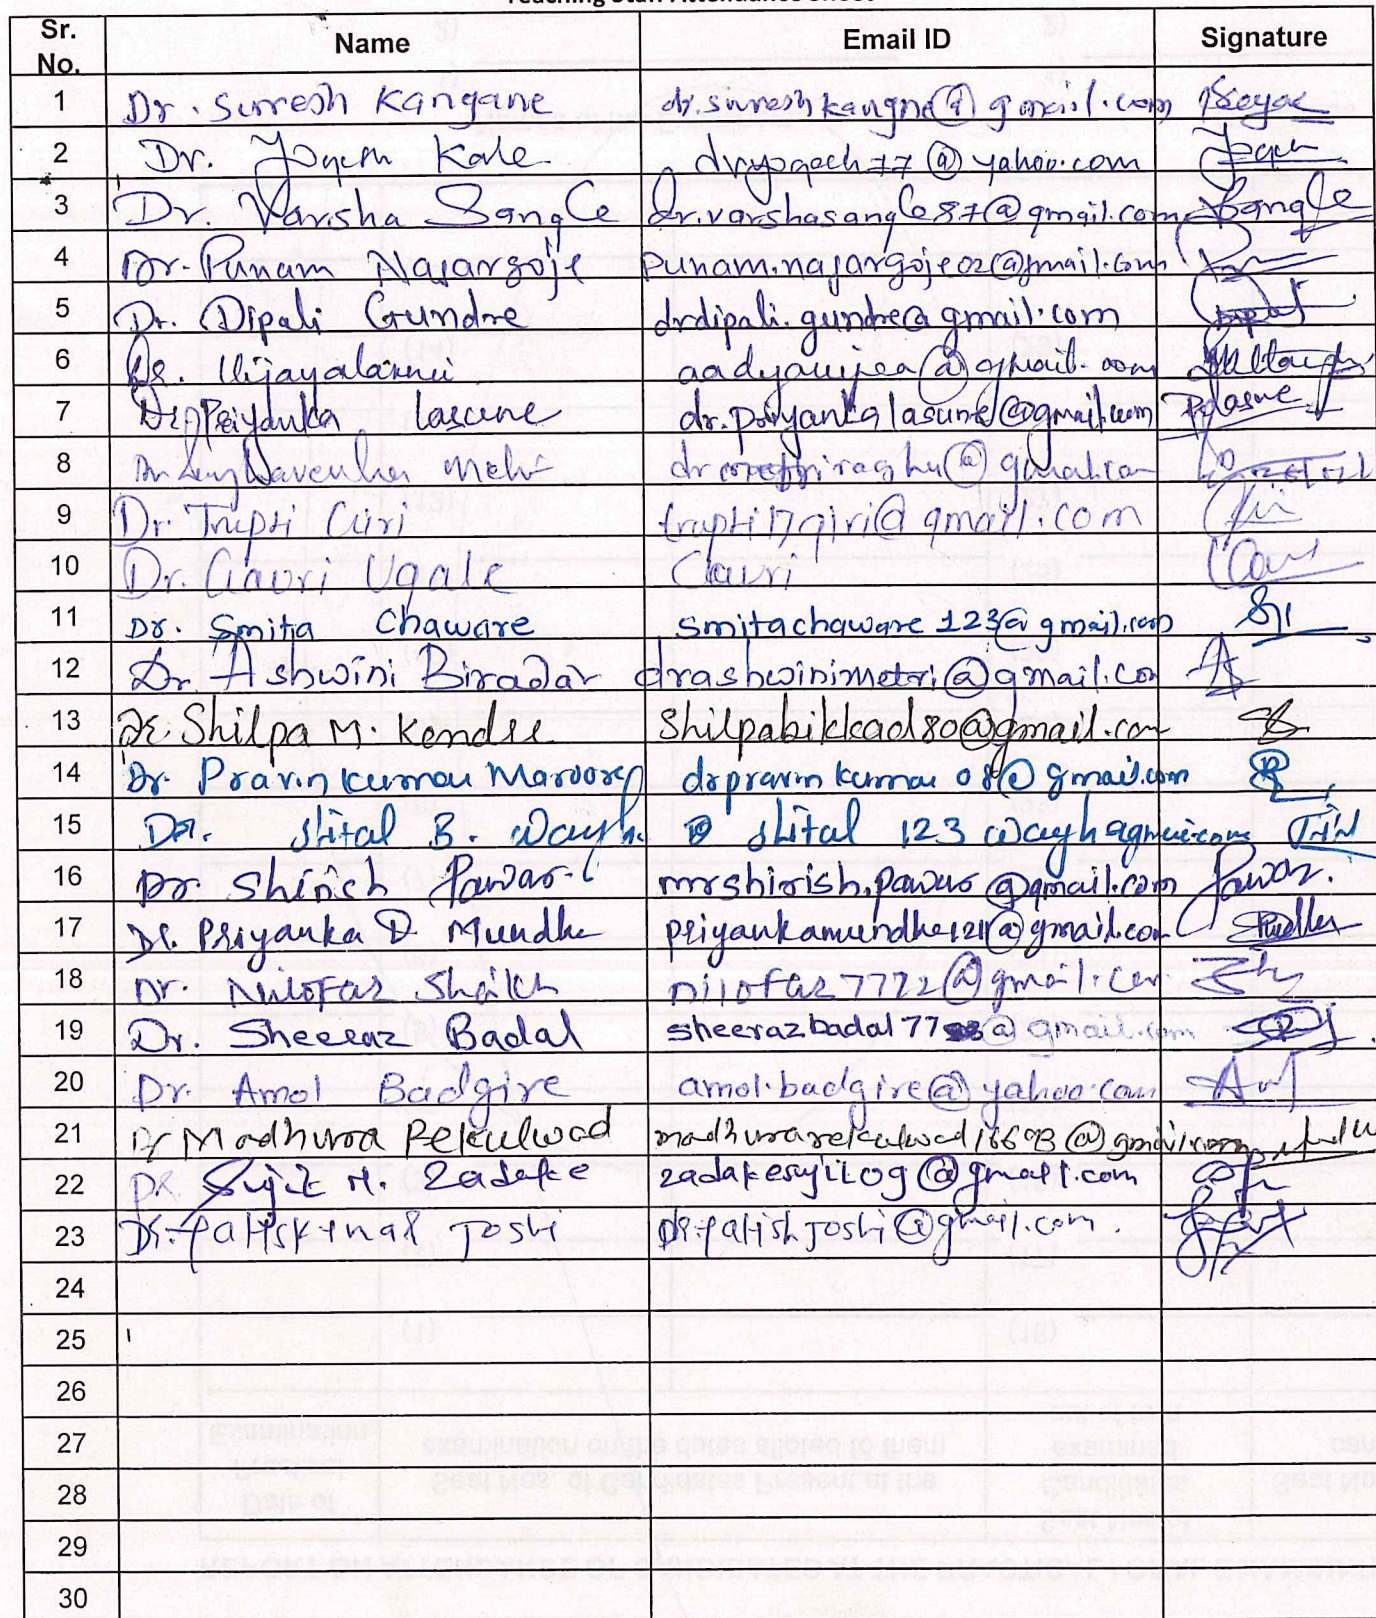 Teaching Staff Attendance Sheet
Sr. No. Name Email ID Signature
1 Dr. Suresh Kangane dr.sureshkangne@gmail.com
2 Dr. Yogesh Kale dryogesh77@yahoo.com
3 Dr. Varsha Sangle dr.varshasangle87@gmail.com Sangle
4 Dr. Punam Nagargoje punam.nagargoje02@gmail.com
5 Dr. Dipali Gundre drdipali.gundre@gmail.com
6 Dr. Vijayalaxmi
7 Dr. Priyanka Lasune dr.priyankalasune@gmail.com Plasune
8
9 Dr. Trupti Giri trupti17giri@gmail.com Giri
10 Dr. Gauri Ugale Gauri
11 Dr. Smita Chaware smitachaware123@gmail.com
12 Dr. Ashwini Biradar drashwinimetri@gmail.com
13 Dr. Shilpa M. Kendre Shilpabikkad80@gmail.com
14 Dr. Pravinkumar drpravinkumar08@gmail.com
15 Dr. Shital B. Wagh Shital123wagh@gmail.com
16 Dr. Shirish Pawar mrshirish.pawar@gmail.com Pawar.
17 Dr. Priyanka D. Mundhe priyankamundhe1211@gmail.com
18 Dr. Nilofar Shaikh nilofar7772@gmail.com
19 Dr. Sheeraz Badal sheerazbadal77@gmail.com
20 Dr. Amol Badgire amol.badgire@yahoo.com
21 Dr Madhura Rekulwad madhurarekulwad16693@gmail.com
22 Dr. Sujit M. Zadake zadakesujit09@gmail.com
23 Joshi
24
25
26
27
28
29
30